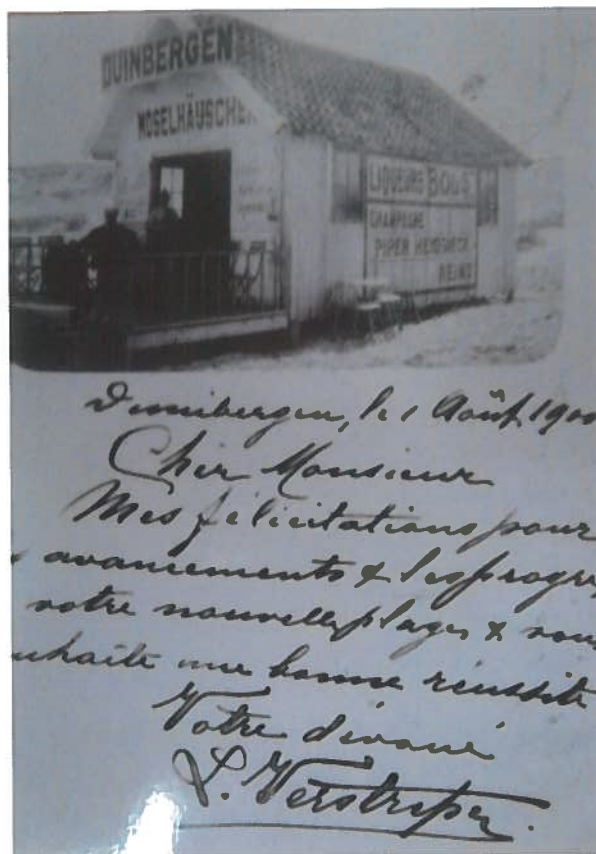 DUINBERGEN
MOSELHÄUSCHEN
LIQUEURS BOLS
CHAMPAGNE
PIPER HEIDSIECK
REIMS
Duinbergen, le 1 Août 1900
Cher Monsieur
Mes félicitations pour
avancements & les progrès
votre nouvelle plage & vous
ouhaite une bonne réussite
Votre dévoué